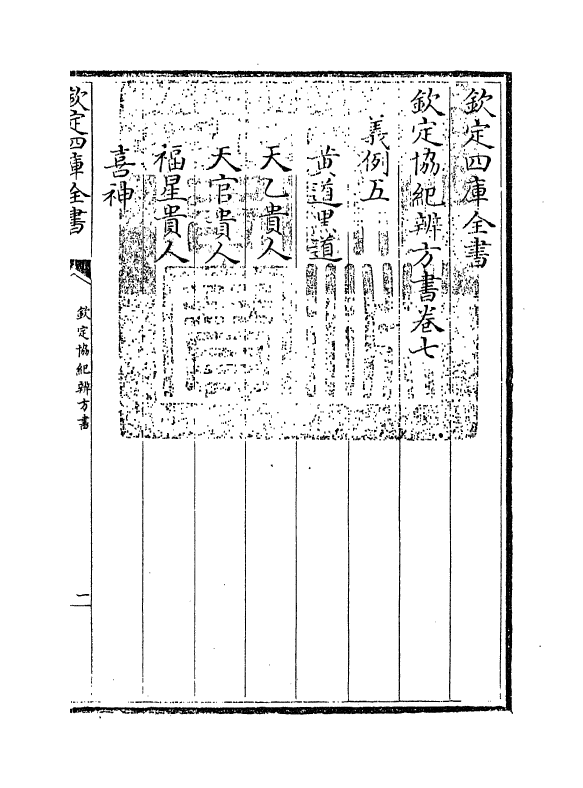 欽定四庫全書
欽定協紀辨方書卷七
義例五
黄道黑道
天乙貴人
天官貴人
福星貴人
喜神
欽定四庫全書
欽定協紀辨方書